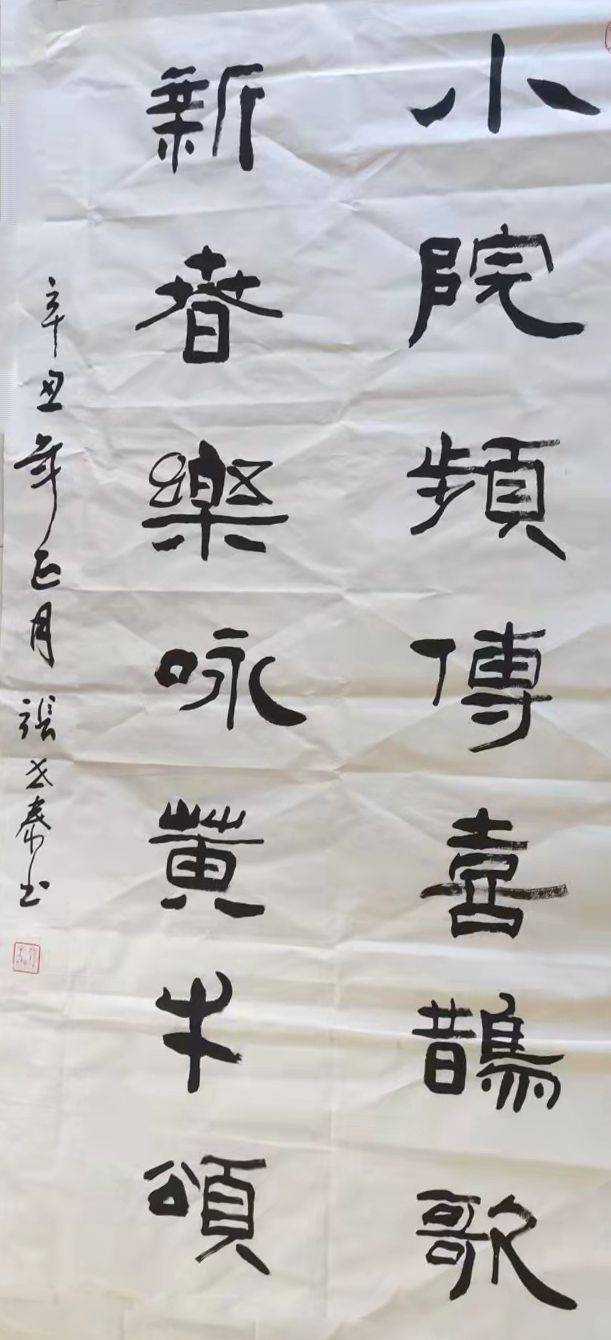 小院頻傳喜鵲歌
新春樂咏黄牛頌
辛丑年正月張書